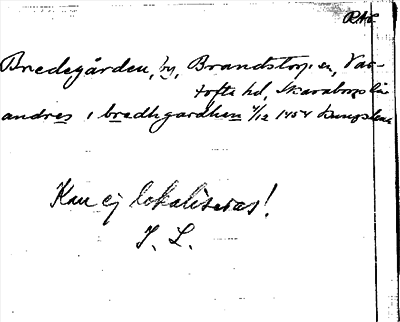 RAÄ
Bredegården, by, Brandstorp sn, Var-
tofta hd, Skaraborgs län
andres i bredhgardhen 4/12 1454 Kungslena
Kan ej lokaliseras!
I. L.